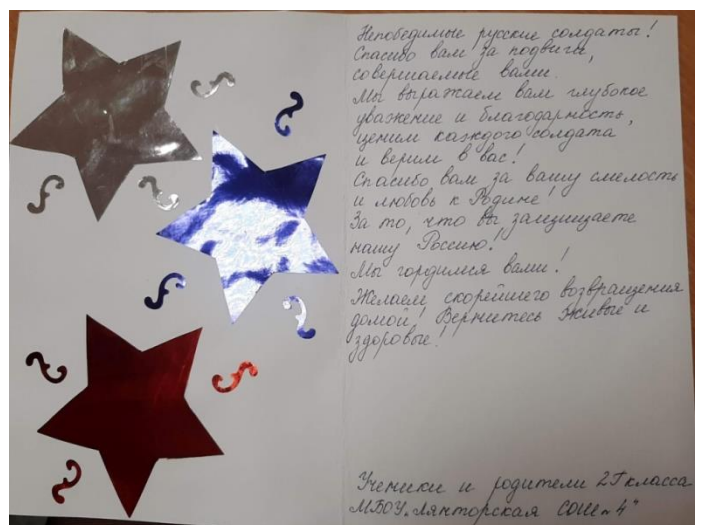 Непобедимые русские солдаты!
Спасибо вам за подвиги,
совершаемые вами.
Мы выражаем вам глубокое
уважение и благодарность,
ценим каждого солдата
и верим в вас!
Спасибо вам за вашу смелость
и любовь к Родине!
За то, что вы защищаете
нашу Россию!
Мы гордимся вами!
Желаем скорейшего возвращения
домой! Вернитесь живые и
здоровые!
Ученики и родители 2Г класса
МБОУ „Лянторская СОШ №4"